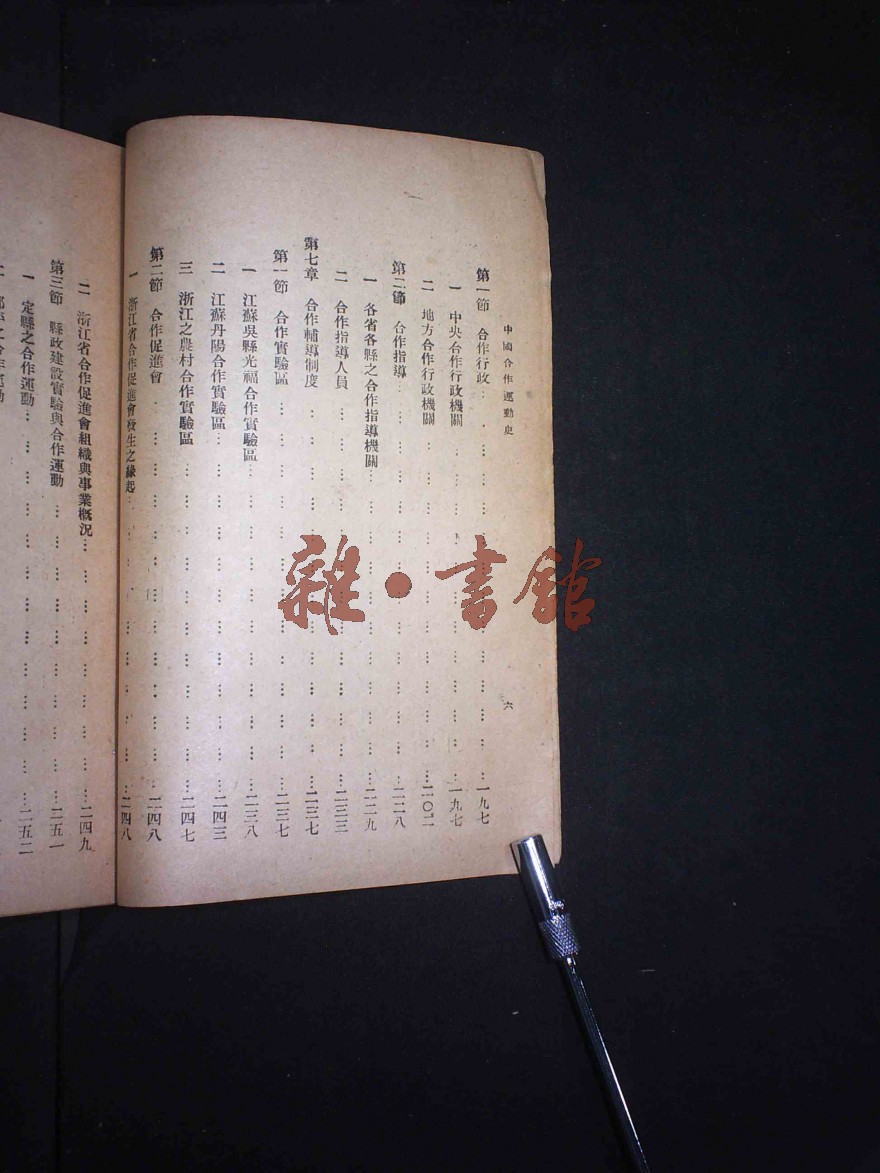 中國合作運動史
六
第一節 合作行政……一九七
一 中央合作行政機關……一九七
二 地方合作行政機關……二〇二
第二節 合作指導……二二八
一 各省各縣之合作指導機關……二二九
二 合作指導人員……二三三
第七章 合作輔導制度……二三七
第一節 合作實驗區……二三七
一 江蘇吳縣光福合作實驗區……二三八
二 江蘇丹陽合作實驗區……二四三
三 浙江之農村合作實驗區……二四七
第二節 合作促進會……二四八
一 浙江省合作促進會發生之緣起……二四八
二 浙江省合作促進會組織與事業概況……二四九
第三節 縣政建設實驗與合作運動……二五一
一 定縣之合作運動……二五二
雜·書館